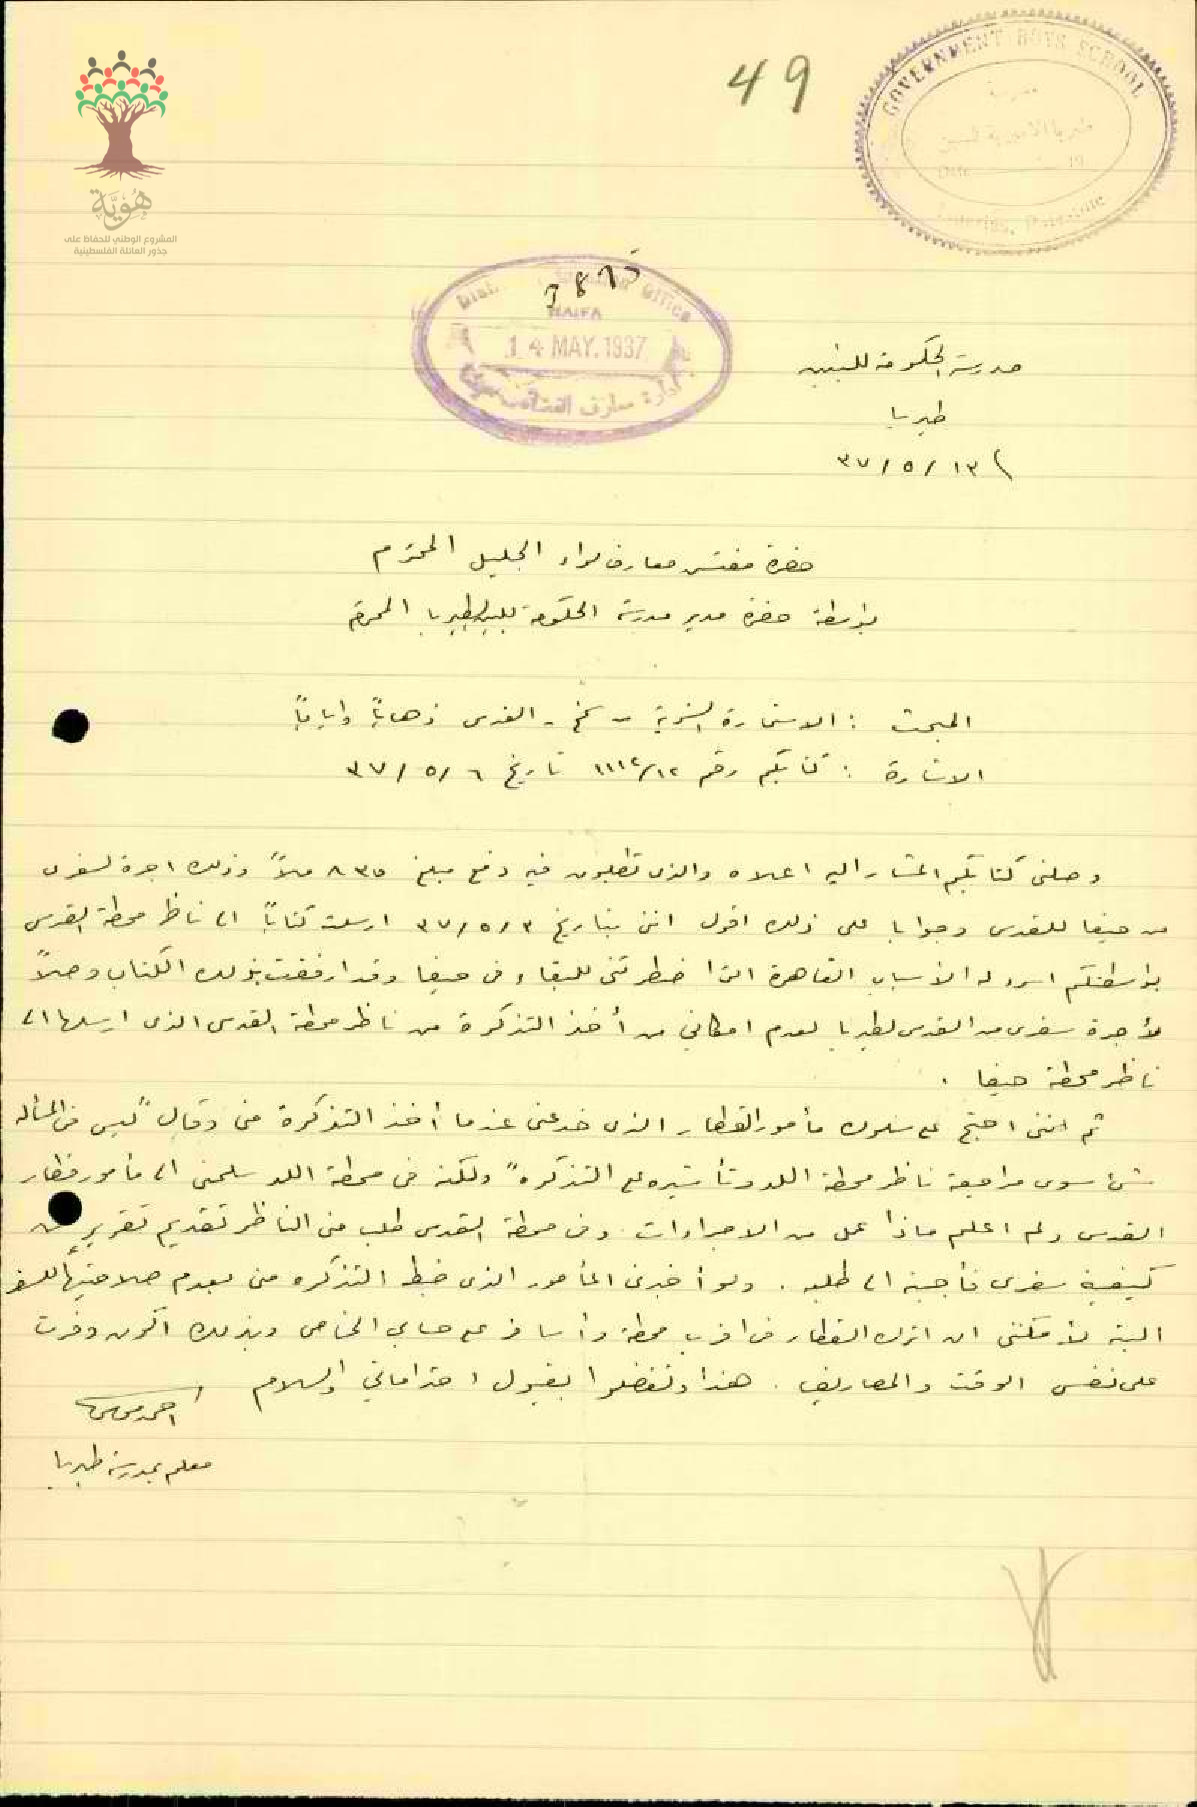 49
GOVERNMENT BOYS SCHOOL
مدرسة
طبريا الاميرية للبنين
Date 19
Tiberias, Palestine
هُوِيَّة
المشروع الوطني للحفاظ على
جذور العائلة الفلسطينية
Office
HAIFA
14 MAY.1937
ادارة معارف
مدرسة الحكومة للبنين
طبريا
١٣ / ٥ / ٣٧
حضرة مفتش معارف لواء الجليل المحترم
بواسطة حضرة مدير مدرسة الحكومة للبنين بطبريا المحترم
المبحث : الاستمارة السفرية - سمخ - القدس ذهاباً واياباً
الاشارة : كتابكم رقم ١١١٢/١٢ تاريخ ٦ /٥ /٣٧
وصلني كتابكم المشار اليه اعلاه والذي تطلبون فيه دفع مبلغ ٨٣٥ ملاً وذلك اجرة لسفري
من حيفا للقدس وجوابا على ذلك اقول انني بتاريخ ٣ /٥ /٣٧ ارسلت كتاباً الى ناظر محطة القدس
بواسطتكم اسرد له الأسباب القاهرة التي اضطرتني للبقاء في حيفا وقد ارفقت بذلك الكتاب وصلاً
لأجرة سفري من القدس لطبريا لعدم امكاني من أخذ التذكرة من ناظر محطة القدس الذي ارسلها الى
ناظر محطة حيفا .
ثم انني احتج على سلوك مأمور القطار الذي خدعني عندما أخذ التذكرة مني وقال "ليس في المسألة
شئ سوى مراجعة ناظر محطة اللد وتأشيره على التذكرة" ولكنه في محطة اللد سلمني الى مأمور قطار
القدس ولم اعلم ماذا عمل من الاجراءات . وفي محطة القدس طلب مني الناظر تقديم تقرير عن
كيفية سفري فأجبته الى طلبه . ولو أخبرني المأمور الذي ضبط التذكرة مني بعدم صلاحيتها للسفر
البتة لأمكنني ان اترك القطار في اقرب محطة وأسافر على حسابي الخاص وبذلك اكون وفرت
على نفسي الوقت والمصاريف . هذا وتفضلوا بقبول احتراماتي والسلام
معلم بمدرسة طبريا